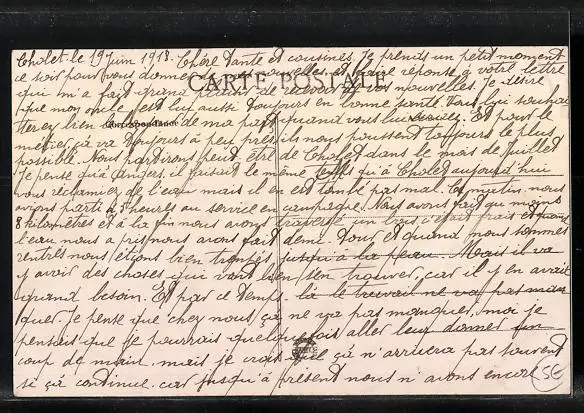 Cholet, le 19 Juin 1918. Chère Tante et cousines. Je prends un petit moment
ce soir pour vous donner nouvelles et faire réponse à votre lettre
CARTE POSTALE
qui m'a fait grand de recevoir de vos nouvelles. Je désire
que mon oncle est lui aussi toujours en bonne santé. Vous lui souhai
terez bien le de ma part quand vous lui Et pour le
Correspondance
métier, çà va toujours à peu près ils nous poussent toujours le plus
possible. Nous partirons peut être de Cholet dans le mois de Juillet
Je pense qu'à Angers il faisait le même temps qu'à Cholet aujourd'hui
vous réclamiez de l'eau mais il en est tombé pas mal. Ce matin nous
avions parti à heures au service en campagne. Nous avons fait au moins
8 kilomètres et à la fin nous avons traversé un bois c'était frais et quand
l'eau nous a pris nous avons fait demi tour et quand nous sommes
rentrés nous étions bien trempés jusqu'à la peau. Mais il va
y avoir des choses qui vont bien s'en trouver, car il y en avait
grand besoin. Et par ce temps là le travail ne va pas man
quer. Je pense que chez nous, çà ne va pas manquer, moi je
pensais que je pourrais quelquefois aller leur donner un
coup de main, mais je crois que çà n'arrivera pas souvent
si çà continue, car jusqu'à présent nous n'avons encore